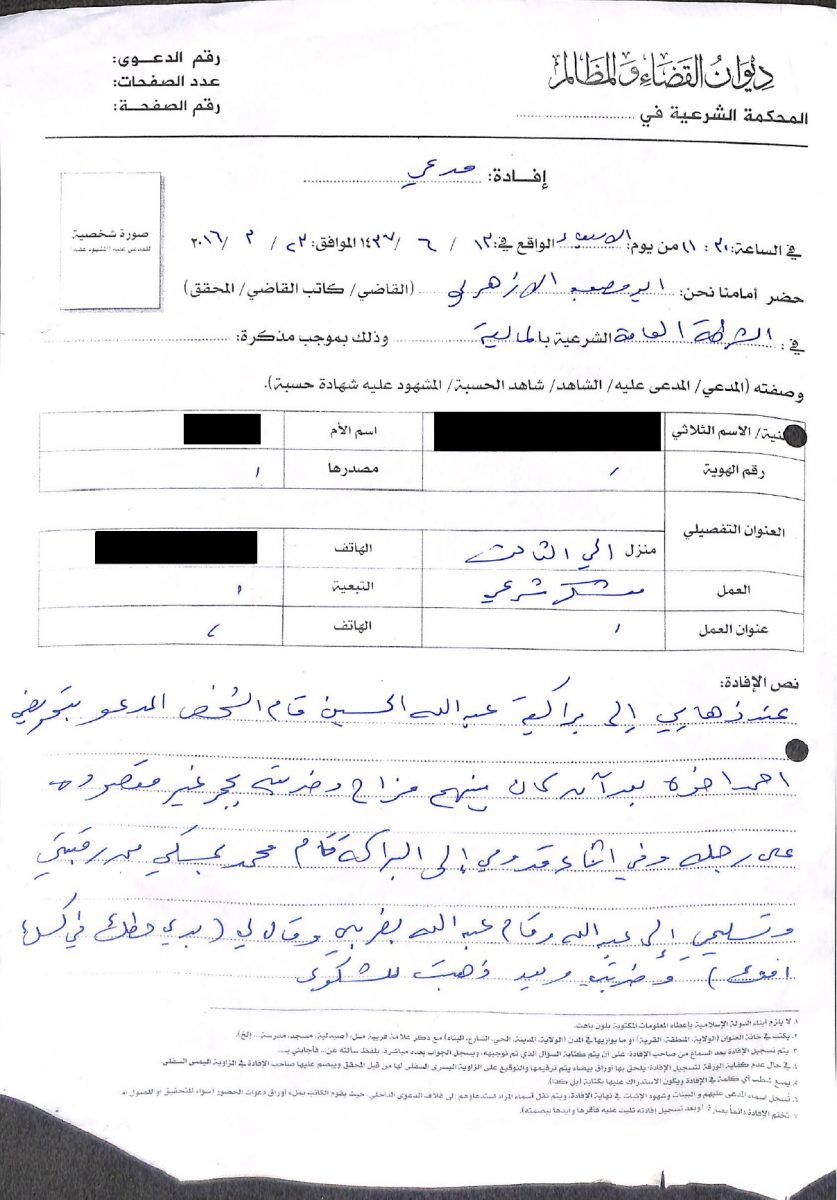 ديوان القضاء والمظالم
المحكمة الشرعية في
رقم الدعوى:
عدد الصفحات:
رقم الصفحة:
إفادة: مدعي
صورة شخصية
في الساعة: ٣٠ : ١١ من يوم: الاربعاء الواقع في: ١٣ / ٦ / ١٤٣٧ الموافق: ٢٣ / ٣ / ٢٠١٦
حضر أمامنا نحن: ابو مصعب الازهري (القاضي/ كاتب القاضي/ المحقق)
في: الشرطة العامة الشرعية بالمالية وذلك بموجب مذكرة:
وصفته (المدعي/ المدعى عليه/ الشاهد/ شاهد الحسبة/ المشهود عليه شهادة حسبة).
الاسم الثلاثي اسم الأم
رقم الهوية / مصدرها /
العنوان التفصيلي
منزل الحي الثالث الهاتف
العمل شرعي التبعية /
عنوان العمل / الهاتف /
نص الإفادة:
عند ذهابي إلى براكية عبد الله الحسين قام الشخص المدعو بتحريض
احمد اخوه بعد أن كان بينهم مزاح وضربته بحجر غير مقصود
على رجله وفي اثناء قدومي إلى البراكة قام محمد بمسكي من رقبتي
وتسليمي إلى عبد الله وقام عبد الله بضربي وقال لي (بدي حطك في
) وضربني وبعد ذهبت للشكوى
١. لا يلزم أبناء الدولة الإسلامية بإعطاء المعلومات المكتوبة بلون باهت.
٢. يكتب في خانة العنوان (الولاية، المنطقة، القرية) أو ما يوازيها في المدن (الولاية، المدينة، الحي، الشارع، البناء) مع ذكر علامة قريبة مثل: (صيدلية، مسجد، مدرسة ... إلخ).
٣. يتم تسجيل الإفادة بعد السماع من صاحب الإفادة؛ على أن يتم كتابة السؤال الذي تم توجيهه، ويسجل الجواب بعده مباشرة، بلفظ سألته عن.. فأجابني بـ...
٤. في حال عدم كفاية الورقة لتسجيل الإفادة؛ يلحق بها أوراق بيضاء يتم ترقيمها والتوقيع على الزاوية اليسرى السفلى لها من قبل المحقق ويبصم عليها صاحب الإفادة في الزاوية اليمنى السفلى.
٥. يمنع شطب أي كلمة في الإفادة ويكون الاستدراك عليها بكتابة (بل كذا).
٦. تُسجل أسماء المدعى عليهم والبينات وشهود الإثبات في نهاية الإفادة، ويتم نقل أسماء المراد استدعاؤهم إلى غلاف الدعوى الداخلي، حيث يقوم الكاتب بملء أوراق دعوات الحضور (سواء للتحقيق أو للصول).
٧. تختم الإفادة دائماً بعبارة: (وبعد تسجيل إفادته تليت عليه فأقرها وأيدها ببصمته).